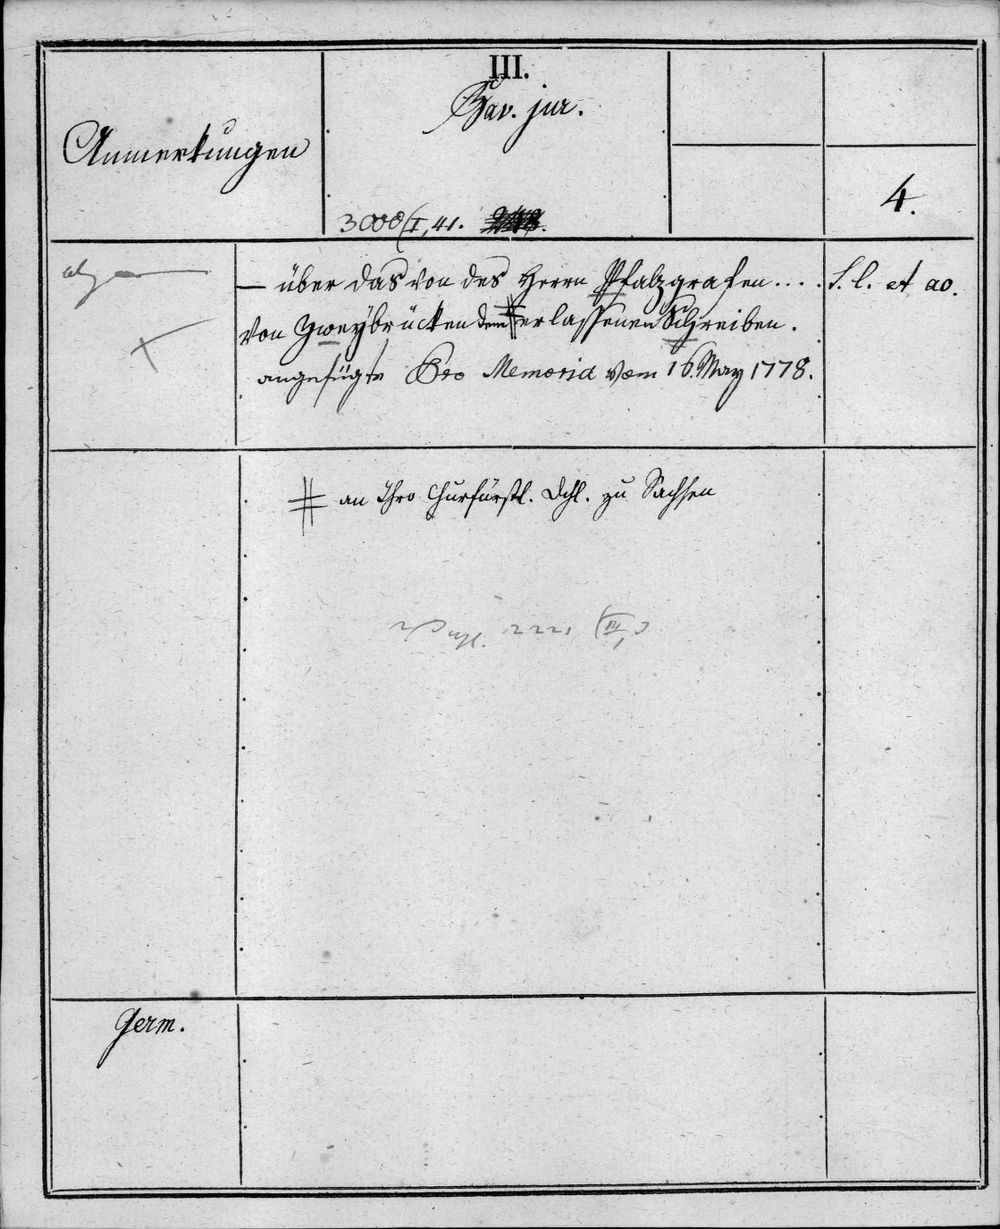 III.
Bav. jur.
Anmerkungen
4.
3000 (I, 41.
— über das von des Herrn Pfalzgrafen .... S. l. et ao.
von Zweybrücken dem # erlassenen Schreiben.
angefügte Pro Memoria vom 16. May 1778.
# an Ihro Churfürstl. Dchl. zu Sachsen
Germ.